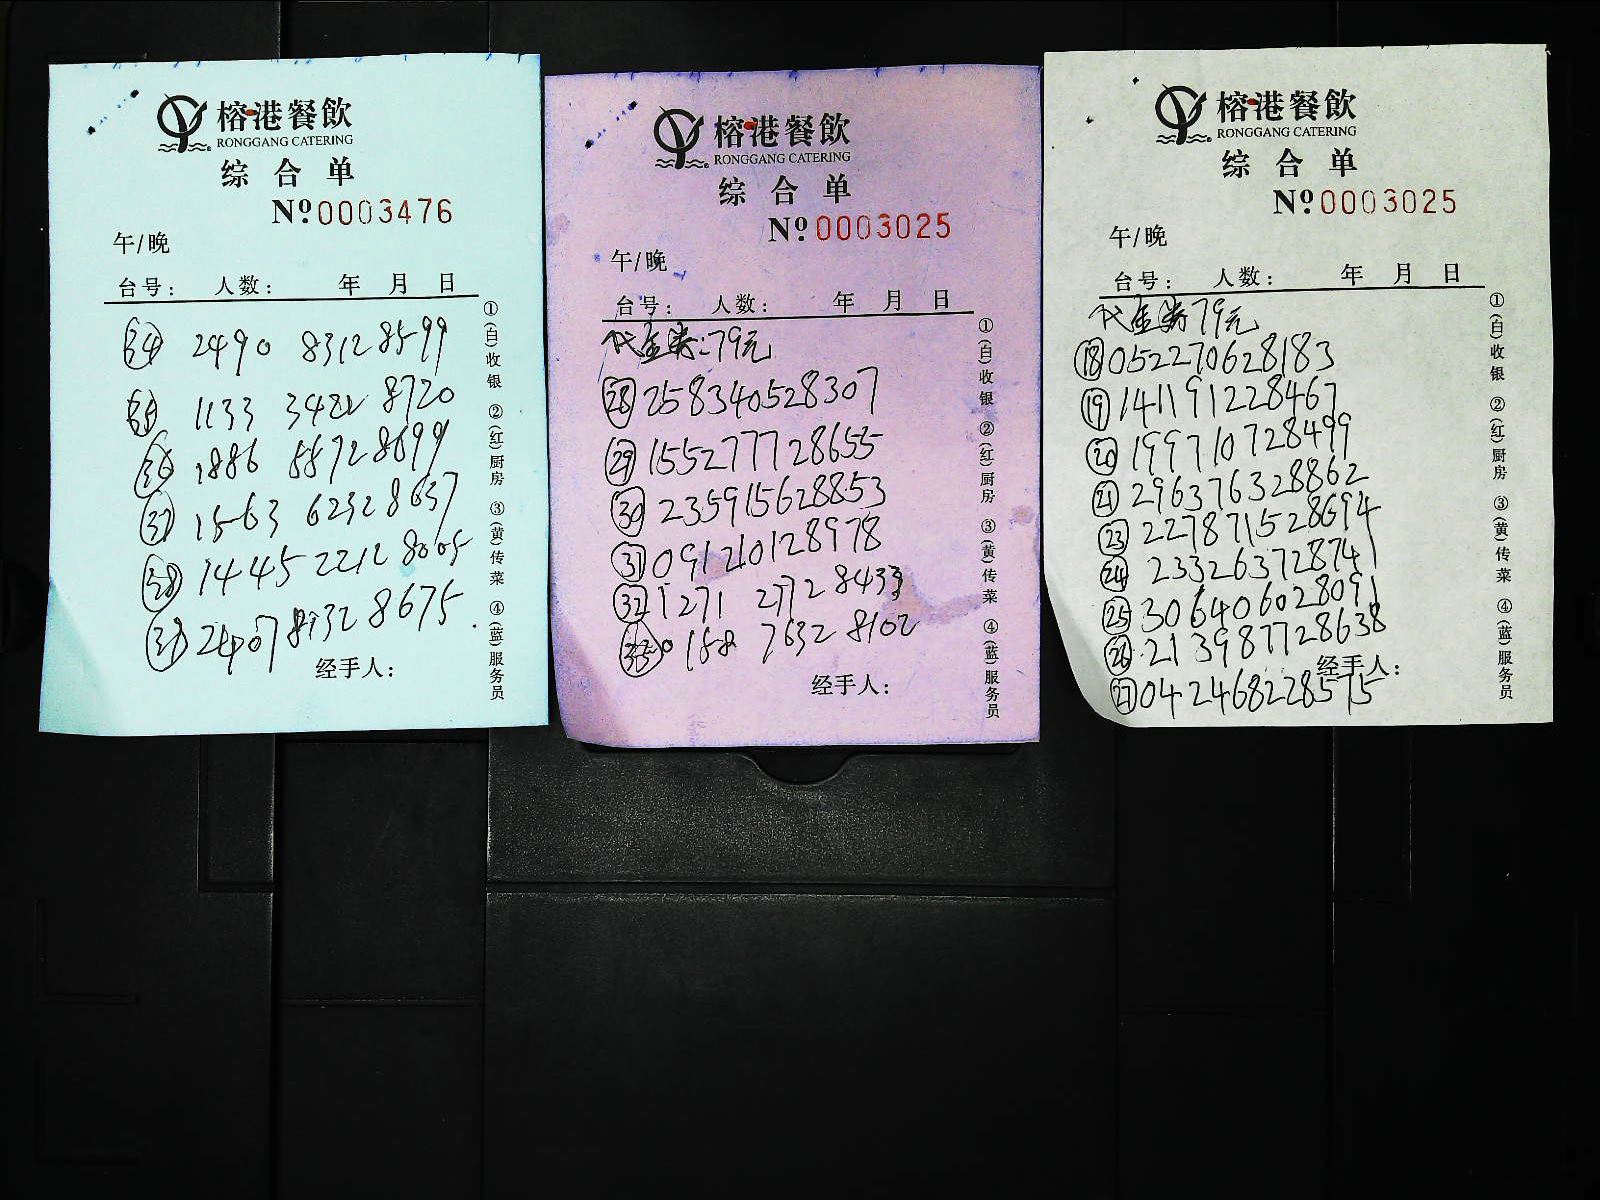 榕港餐飲
RONGGANG CATERING
综合单
Nº0003476
午/晚
台号： 人数： 年 月 日
㉞ 2490 8312 8599
㉟ 1133 3422 8720
㊱ 1886 5572 8699
㊲ 1563 6232 8637
㊳ 1445 2212 8005
㊴ 2407 8132 8675
经手人：
①(白)收银 ②(红)厨房 ③(黄)传菜 ④(蓝)服务员
榕港餐飲
RONGGANG CATERING
综合单
Nº0003025
午/晚
台号： 人数： 年 月 日
代金券：79元
㉘ 258340528307
㉙ 155277728655
㉚ 235915628853
㉛ 091210128978
㉜ 1271 2772 843
㉝ 0158 7632 8102
经手人：
①(白)收银 ②(红)厨房 ③(黄)传菜 ④(蓝)服务员
榕港餐飲
RONGGANG CATERING
综合单
Nº0003025
午/晚
台号： 人数： 年 月 日
代金券79元
⑱ 052270628183
⑲ 141191228467
⑳ 199710728499
㉑ 296376328862
㉓ 227871528694
㉔ 233263728741
㉕ 306406028091
㉖ 213987728638
经手人：
㉗ 042468228575
①(白)收银 ②(红)厨房 ③(黄)传菜 ④(蓝)服务员